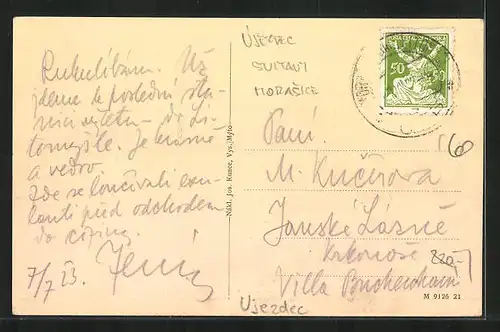 Rukulíbám. Už
jdeme k poslední sta-
nici výletu – do Li-
tomyšle. Je krásně
a vedro.
Zde se loučívali exu-
lanti před odchodem
do ciziny.
7/7 23.
Nákl. Jos. Kunce, Vys. Mýto
ÚJEZDEC
SVITAVY
MORAŠICE
50 50
Paní
M. Kučerová
Janské Lázně
Krkonoše
Villa Buchenhain
220,-
6
M 9126 21
Ujezdec